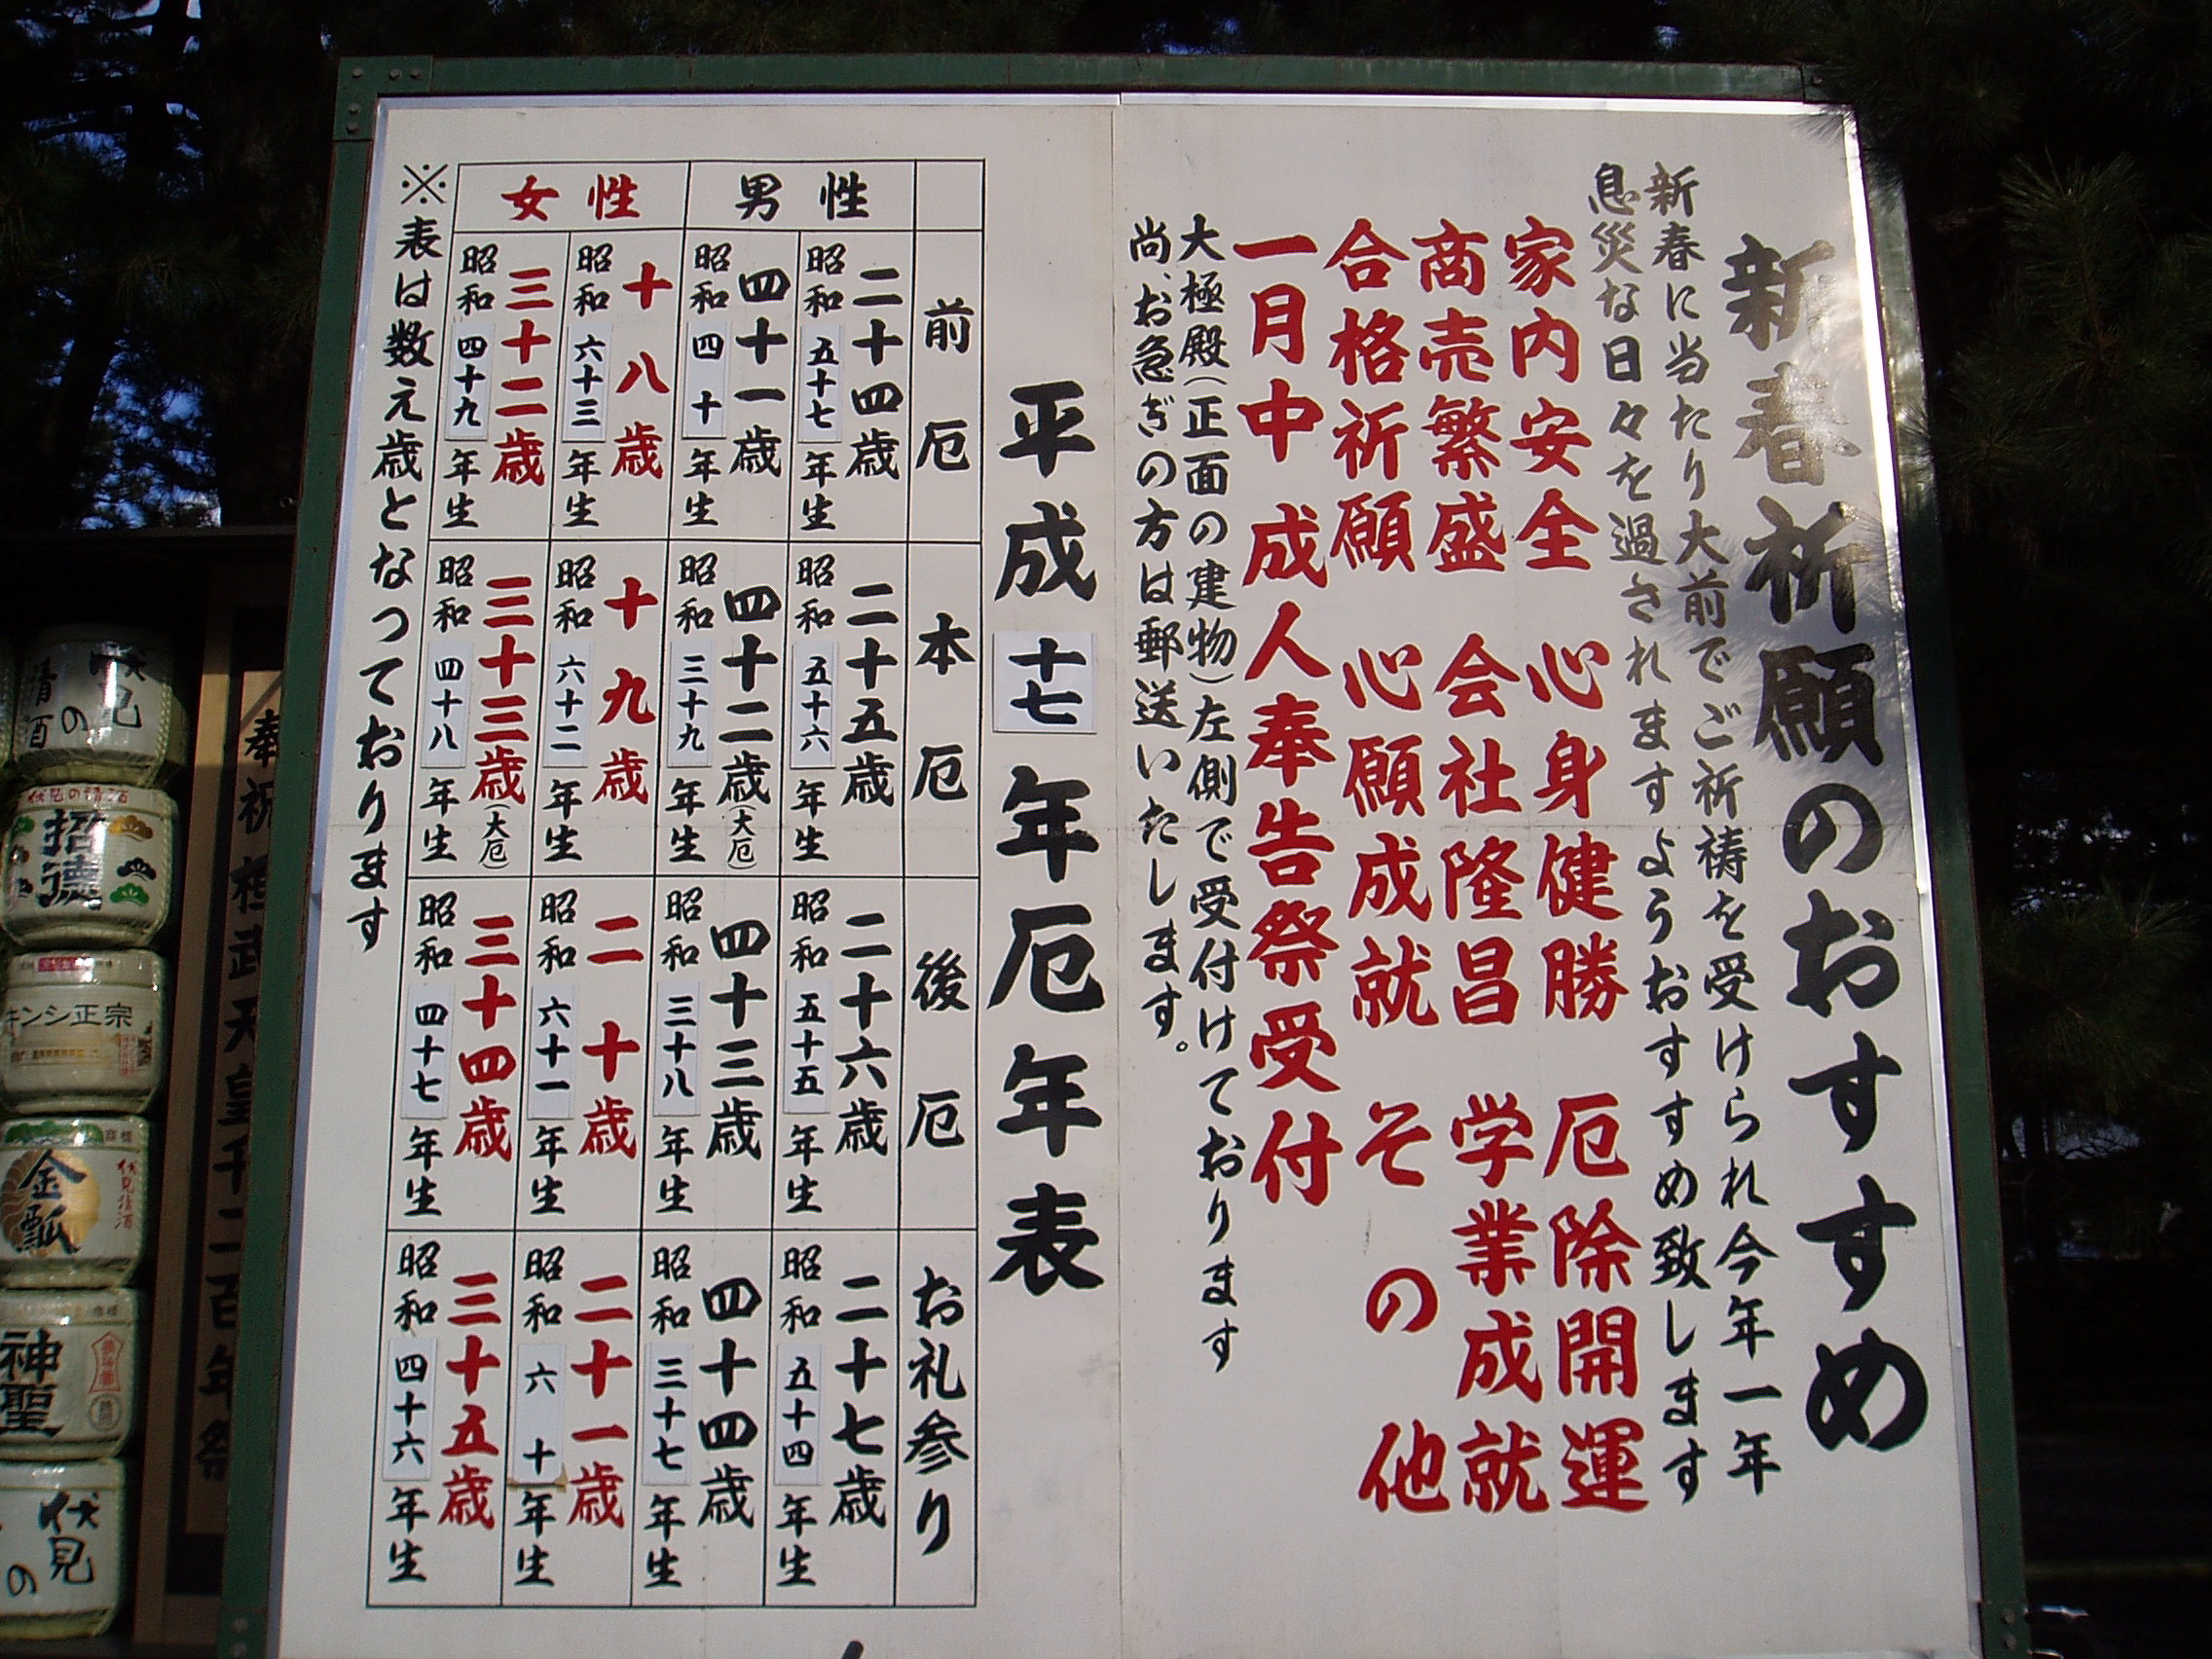 新春祈願のおすすめ
新春に当たり大前でご祈祷を受けられ今年一年
息災な日々を過されますようおすすめ致します
家内安全 心身健勝 厄除開運
商売繁盛 会社隆昌 学業成就
合格祈願 心願成就 その他
一月中 成人奉告祭受付
大極殿(正面の建物)左側で受付けております
尚、お急ぎの方は郵送いたします。
平成十七年厄年表
前厄 本厄 後厄 お礼参り
男性
二十四歳 昭和五十七年生 二十五歳 昭和五十六年生 二十六歳 昭和五十五年生 二十七歳 昭和五十四年生
四十一歳 昭和四十年生 四十二歳(大厄) 昭和三十九年生 四十三歳 昭和三十八年生 四十四歳 昭和三十七年生
女性
十八歳 昭和六十三年生 十九歳 昭和六十二年生 二十歳 昭和六十一年生 二十一歳 昭和六十年生
三十二歳 昭和四十九年生 三十三歳(大厄) 昭和四十八年生 三十四歳 昭和四十七年生 三十五歳 昭和四十六年生
※表は数え歳となっております
奉祝桓武天皇千二百年祭
伏見の清酒
伏見の清酒
招德
キンシ正宗
金瓢
伏見清酒
神聖
伏見の